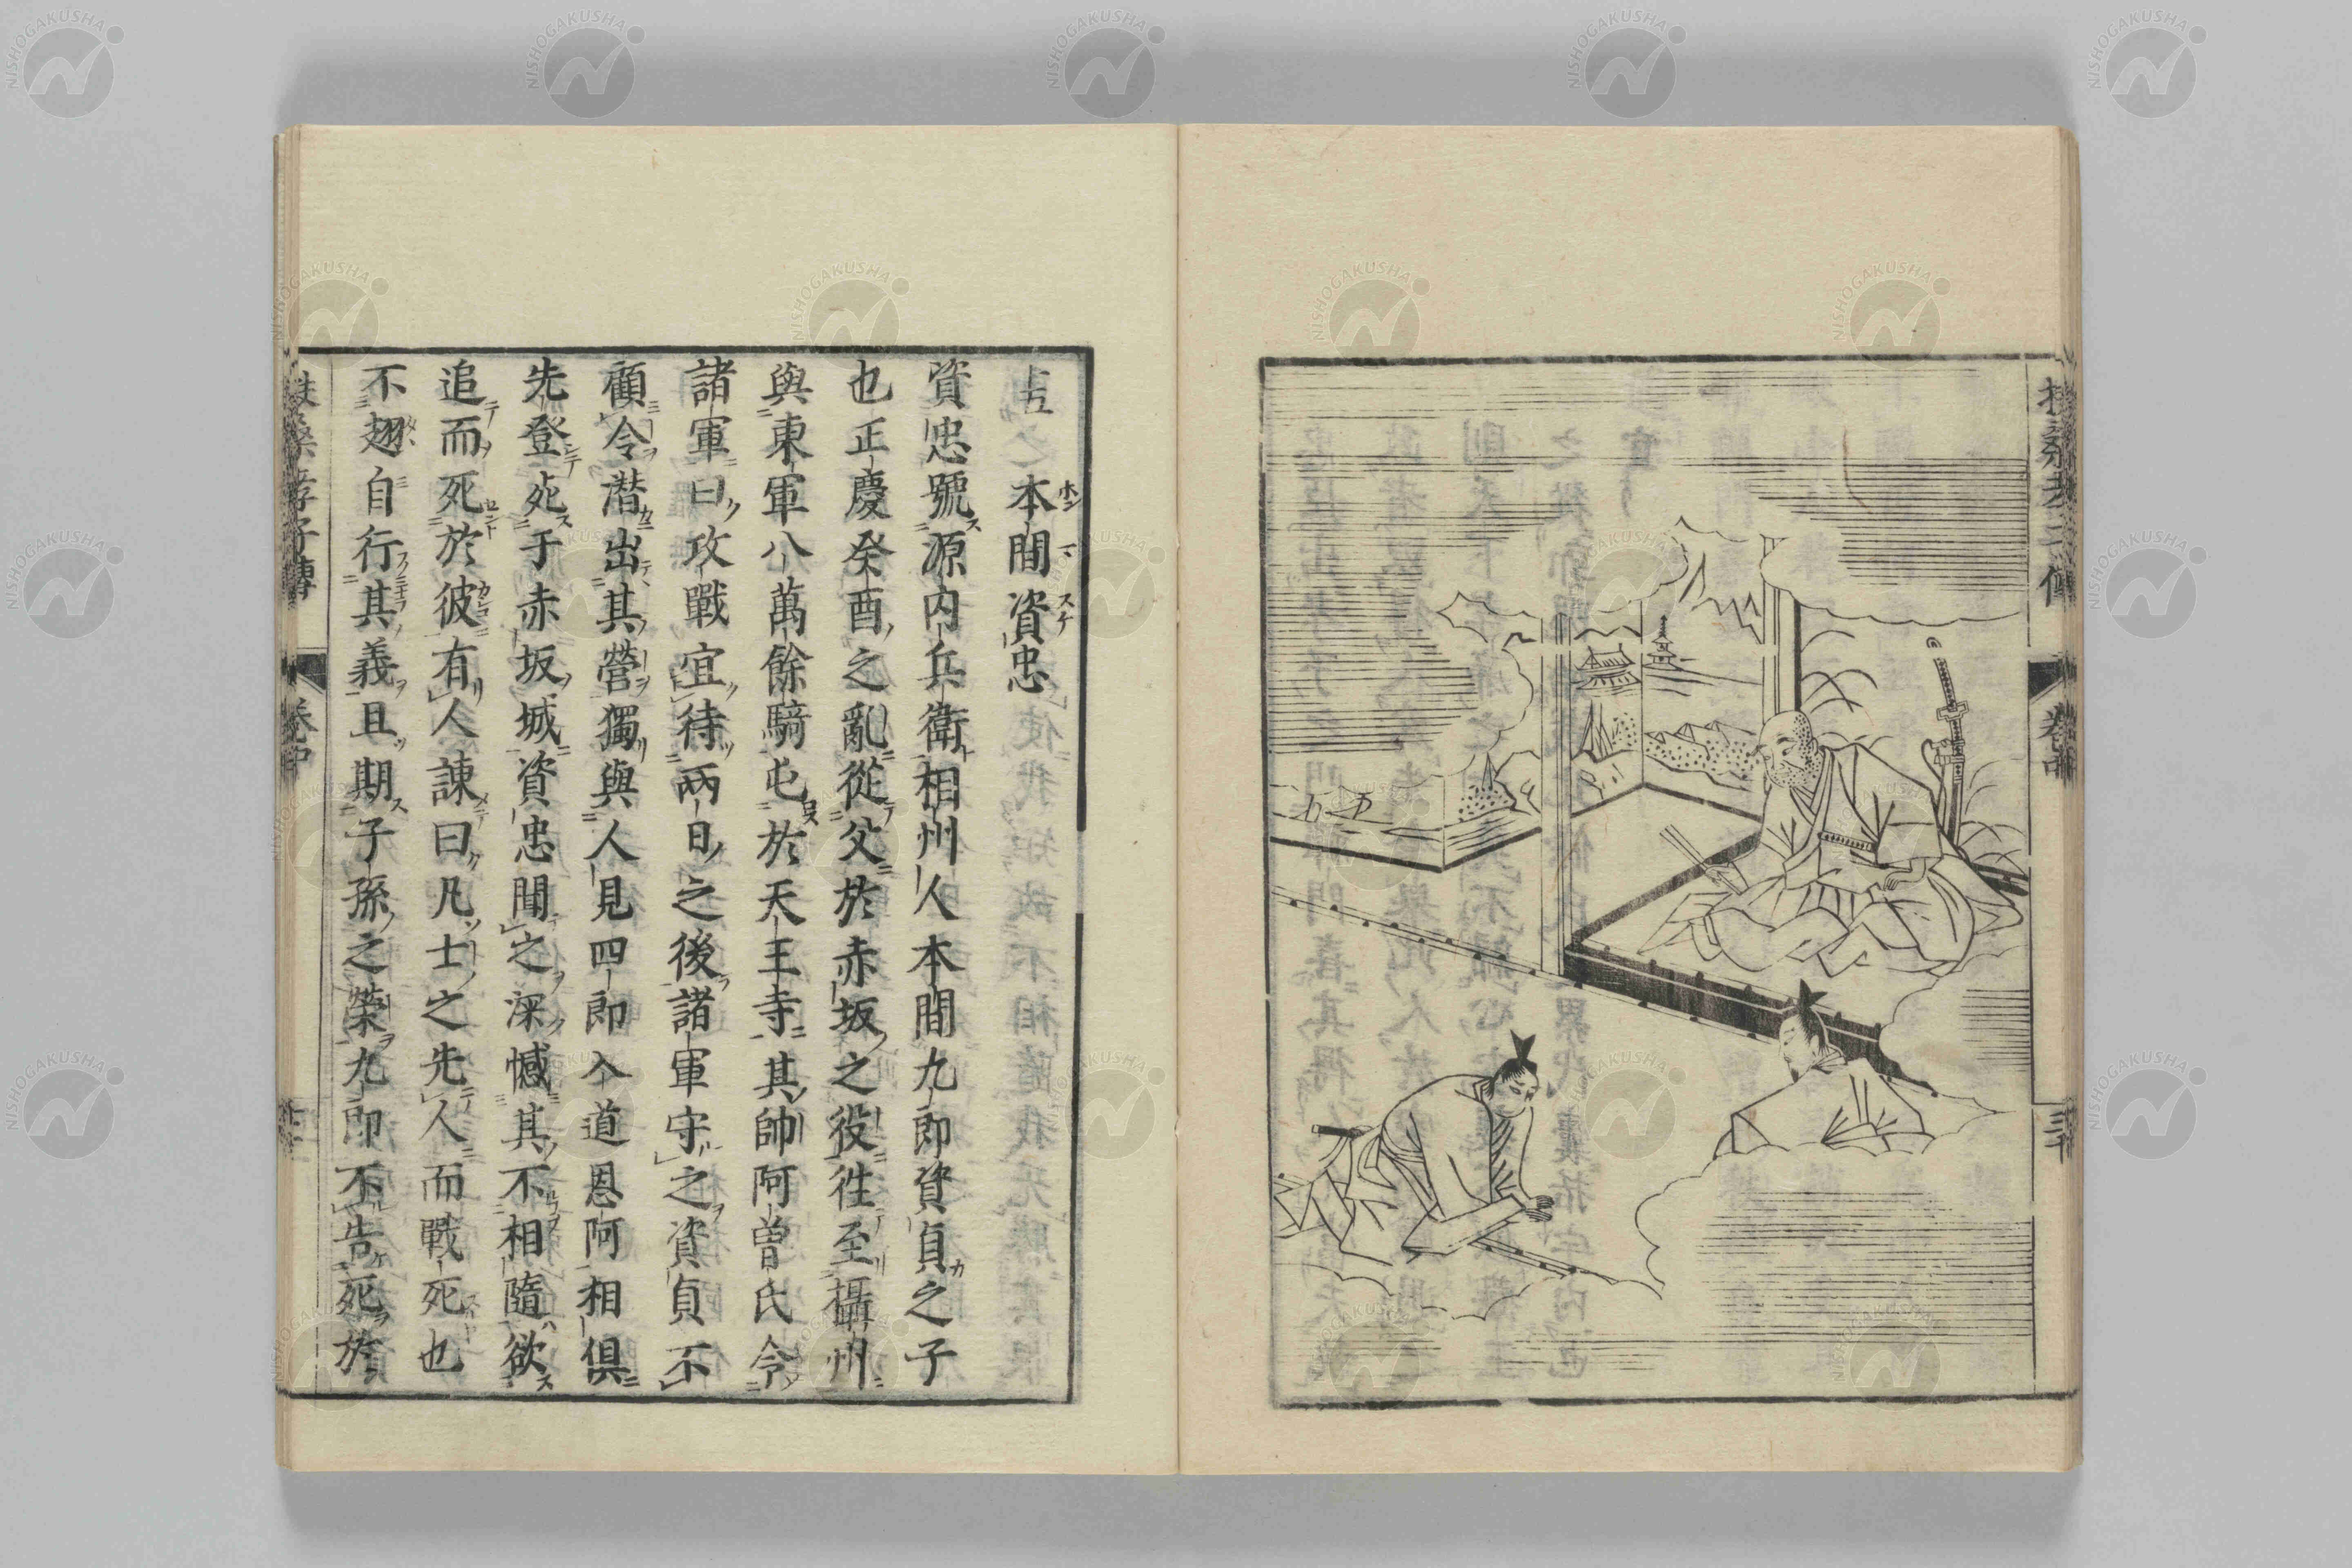 扶桑孝子傳 卷中 三十
十五 本間資忠
資忠號源内兵衛相州人本間九郎資貞之子
也正慶癸酉之亂從父於赤坂之役徃至攝州
與東軍八萬餘騎屯於天王寺其帥阿曽氏令
諸軍曰攻戰宜待兩日之後諸軍守之資貞不
顧令潜出其營獨與人見四郎入道恩阿相俱
先登死于赤坂城資忠聞之深憾其不相隨欲
追而死於彼有人諌曰凡士之先人而戰死也
不翅自行其義且期子孫之榮九郎不告死於
扶桑孝子傳 卷中
NISHOGAKUSHA
NISHOGAKUSHA
NISHOGAKUSHA
NISHOGAKUSHA
NISHOGAKUSHA
NISHOGAKUSHA
NISHOGAKUSHA
NISHOGAKUSHA
NISHOGAKUSHA
NISHOGAKUSHA
NISHOGAKUSHA
NISHOGAKUSHA
NISHOGAKUSHA